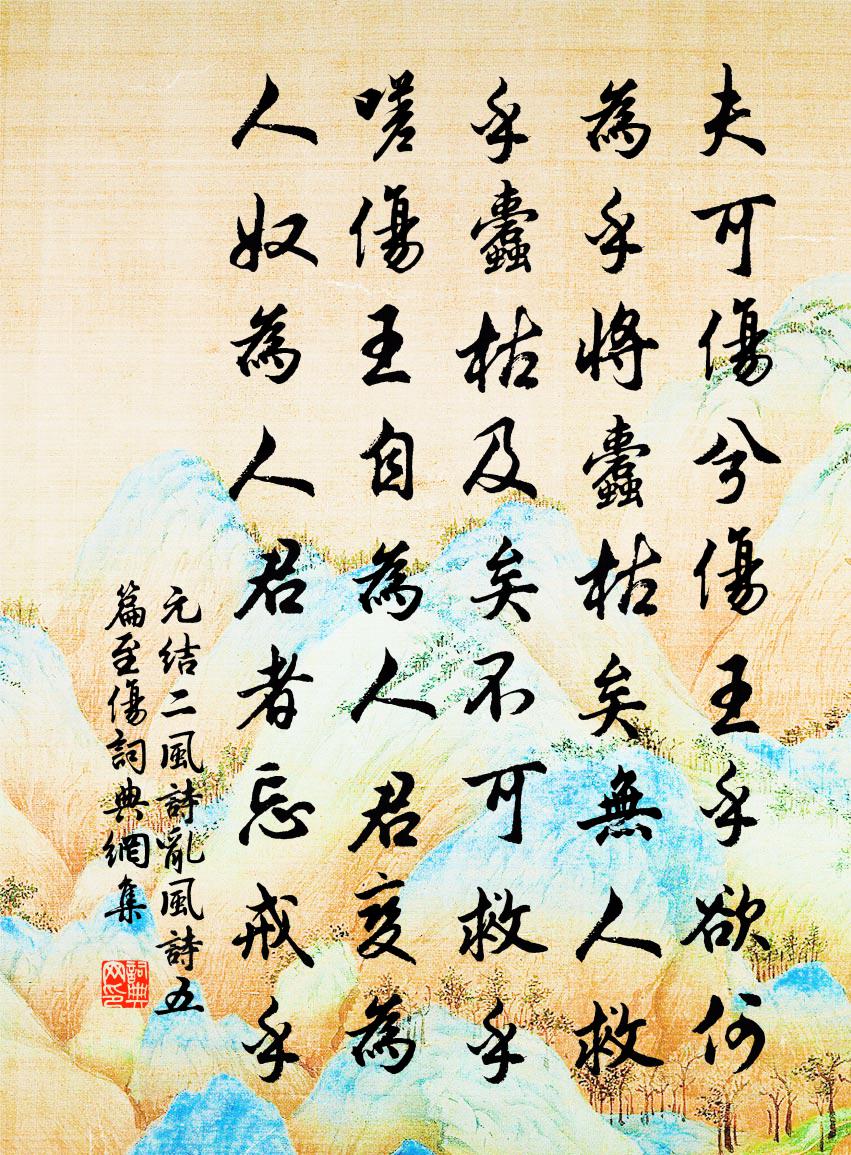 夫可傷兮傷王乎欲何
為乎將蠹枯矣無人救
乎蠹枯及矣不可救乎
嗟傷王自為人君變為
人奴為人君者忘戒乎
元結二風詩亂風詩五
篇至傷詞典網集
詞典網印